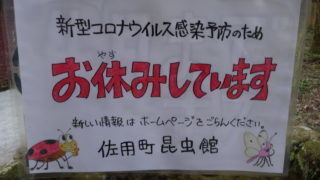 新型コロナウイルス感染予防のため
やす
お休みしています
新しい情報はホームページをごらんください。
佐用町昆虫館